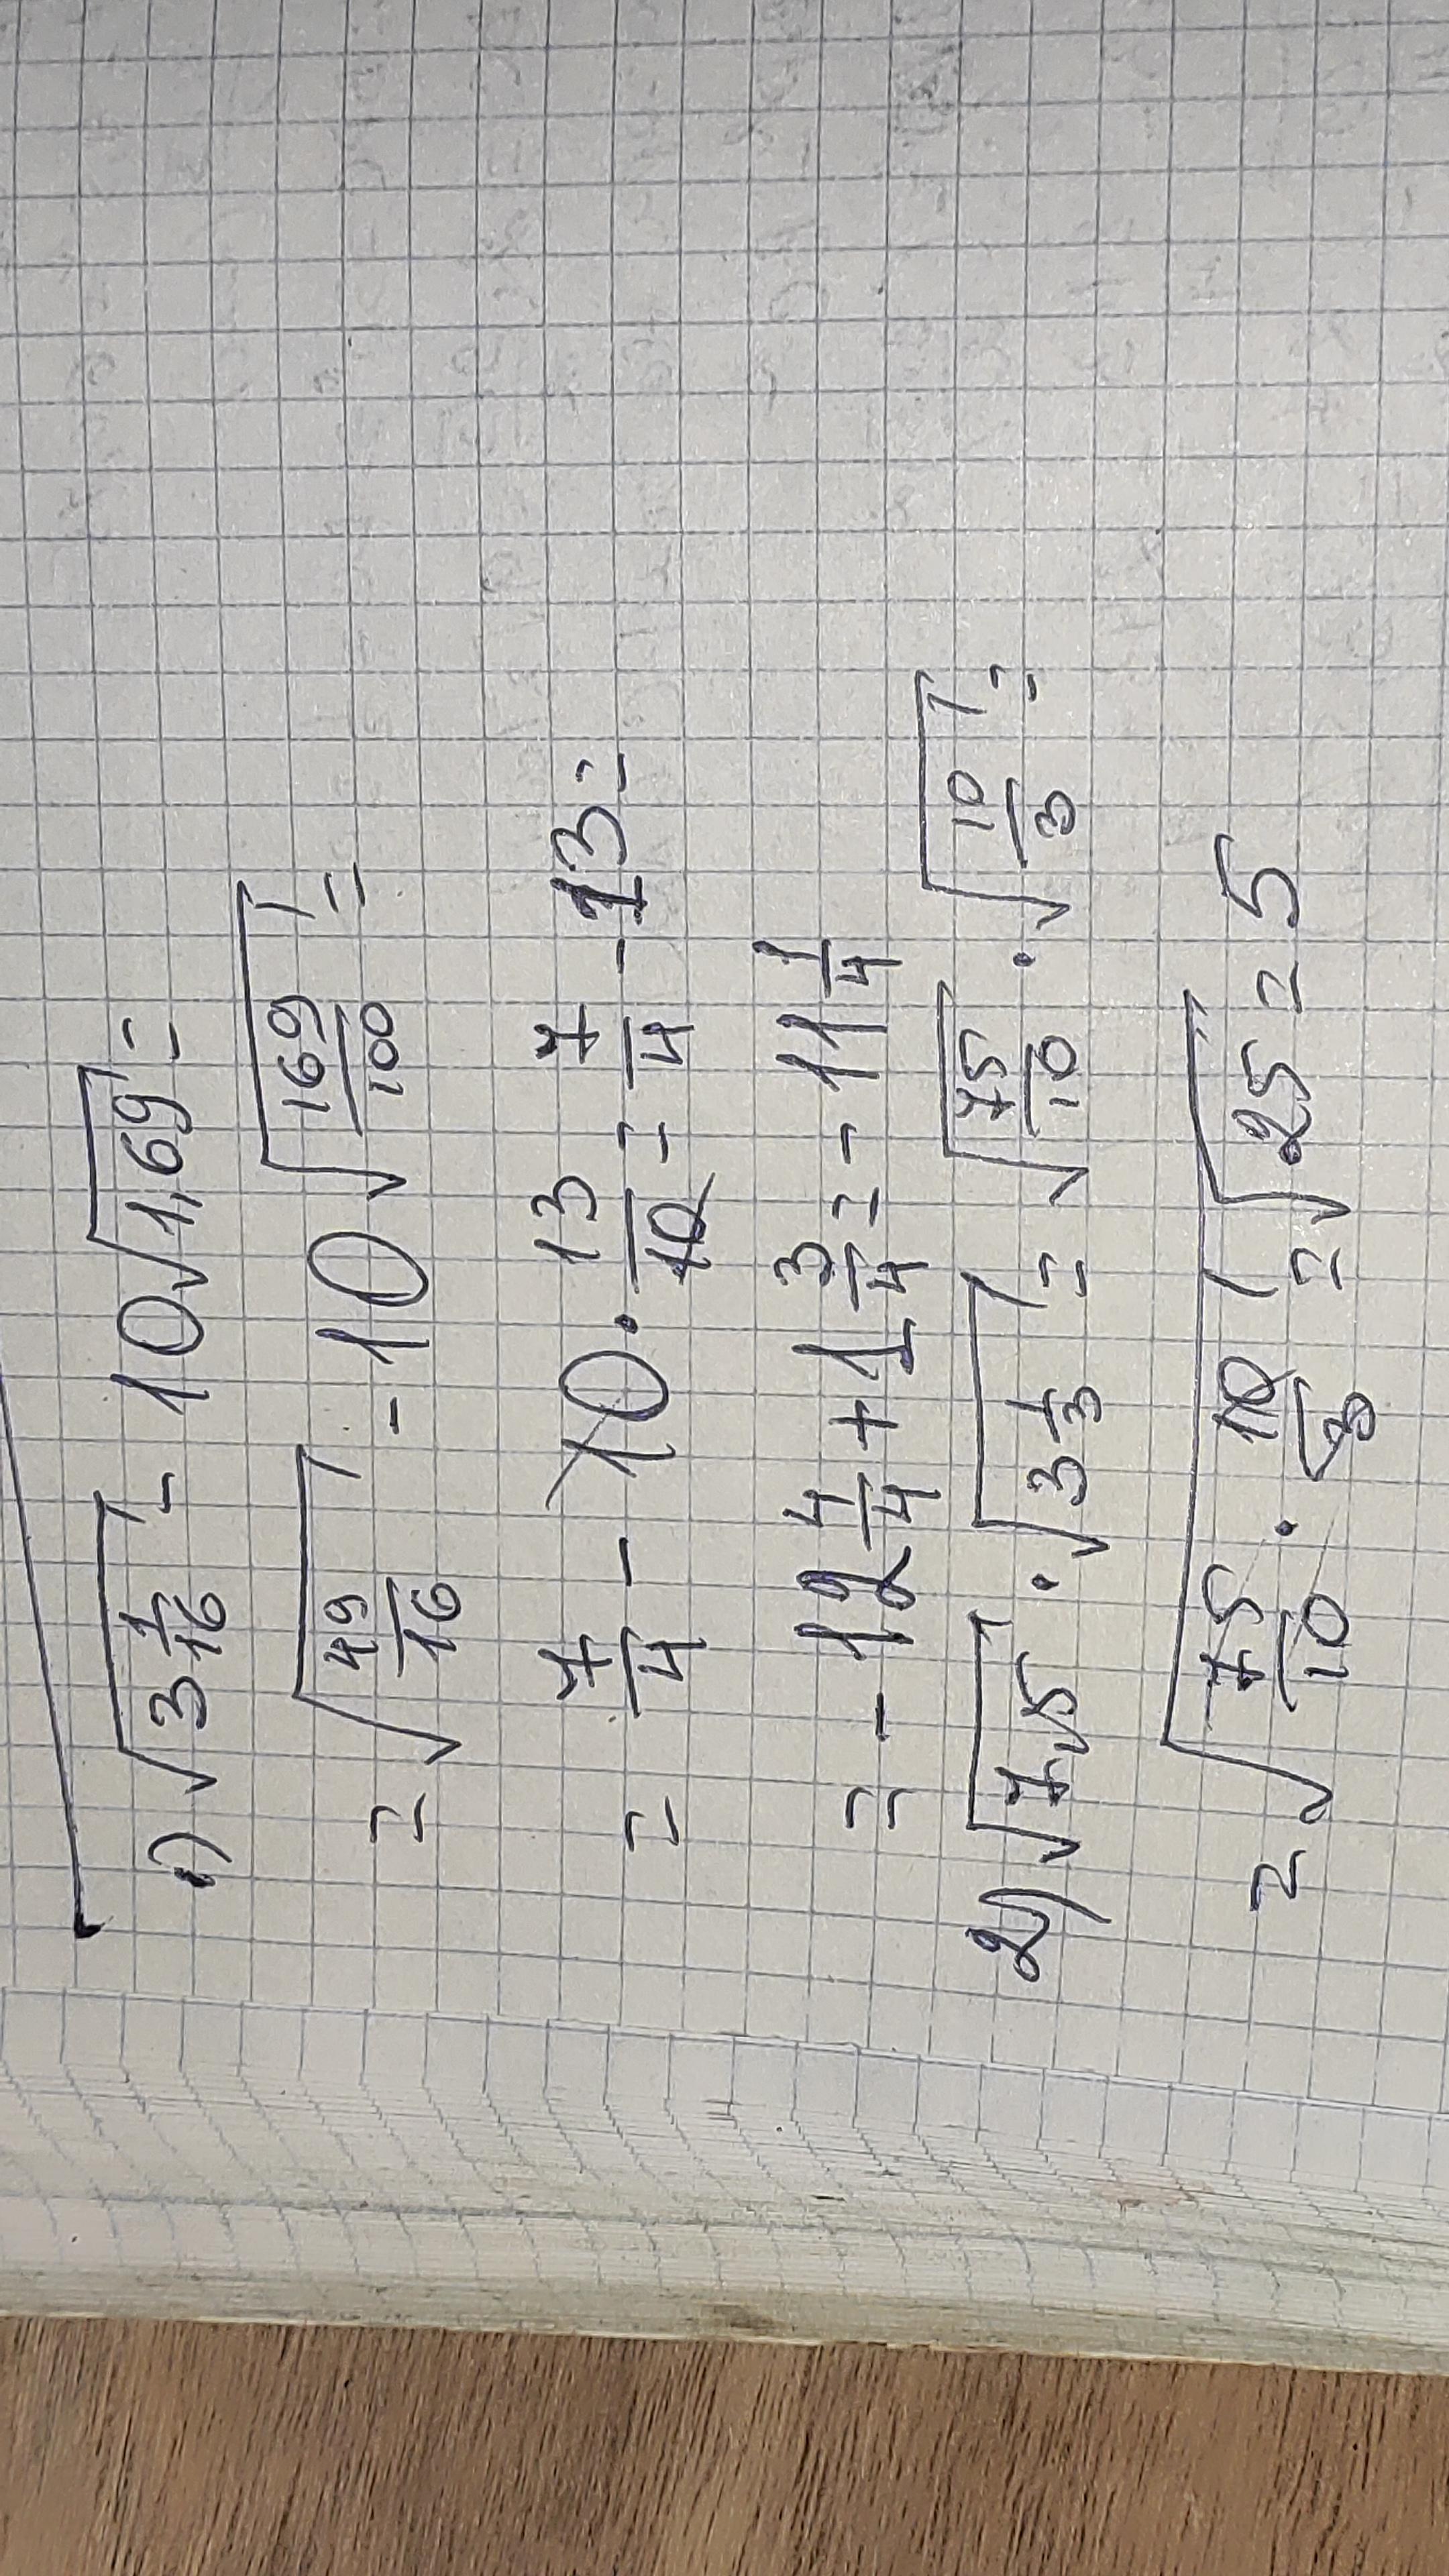 1) √(3 1/16) - 10√(1,69) =
= √(49/16) - 10√(169/100) =
= 7/4 - 10 · 13/10 = 7/4 - 13 =
= - 12 4/4 + 1 3/4 = - 11 1/4
2) √(7,5) · √(3 1/3) = √(75/10) · √(10/3) =
= √(75/10 · 10/3) = √25 = 5